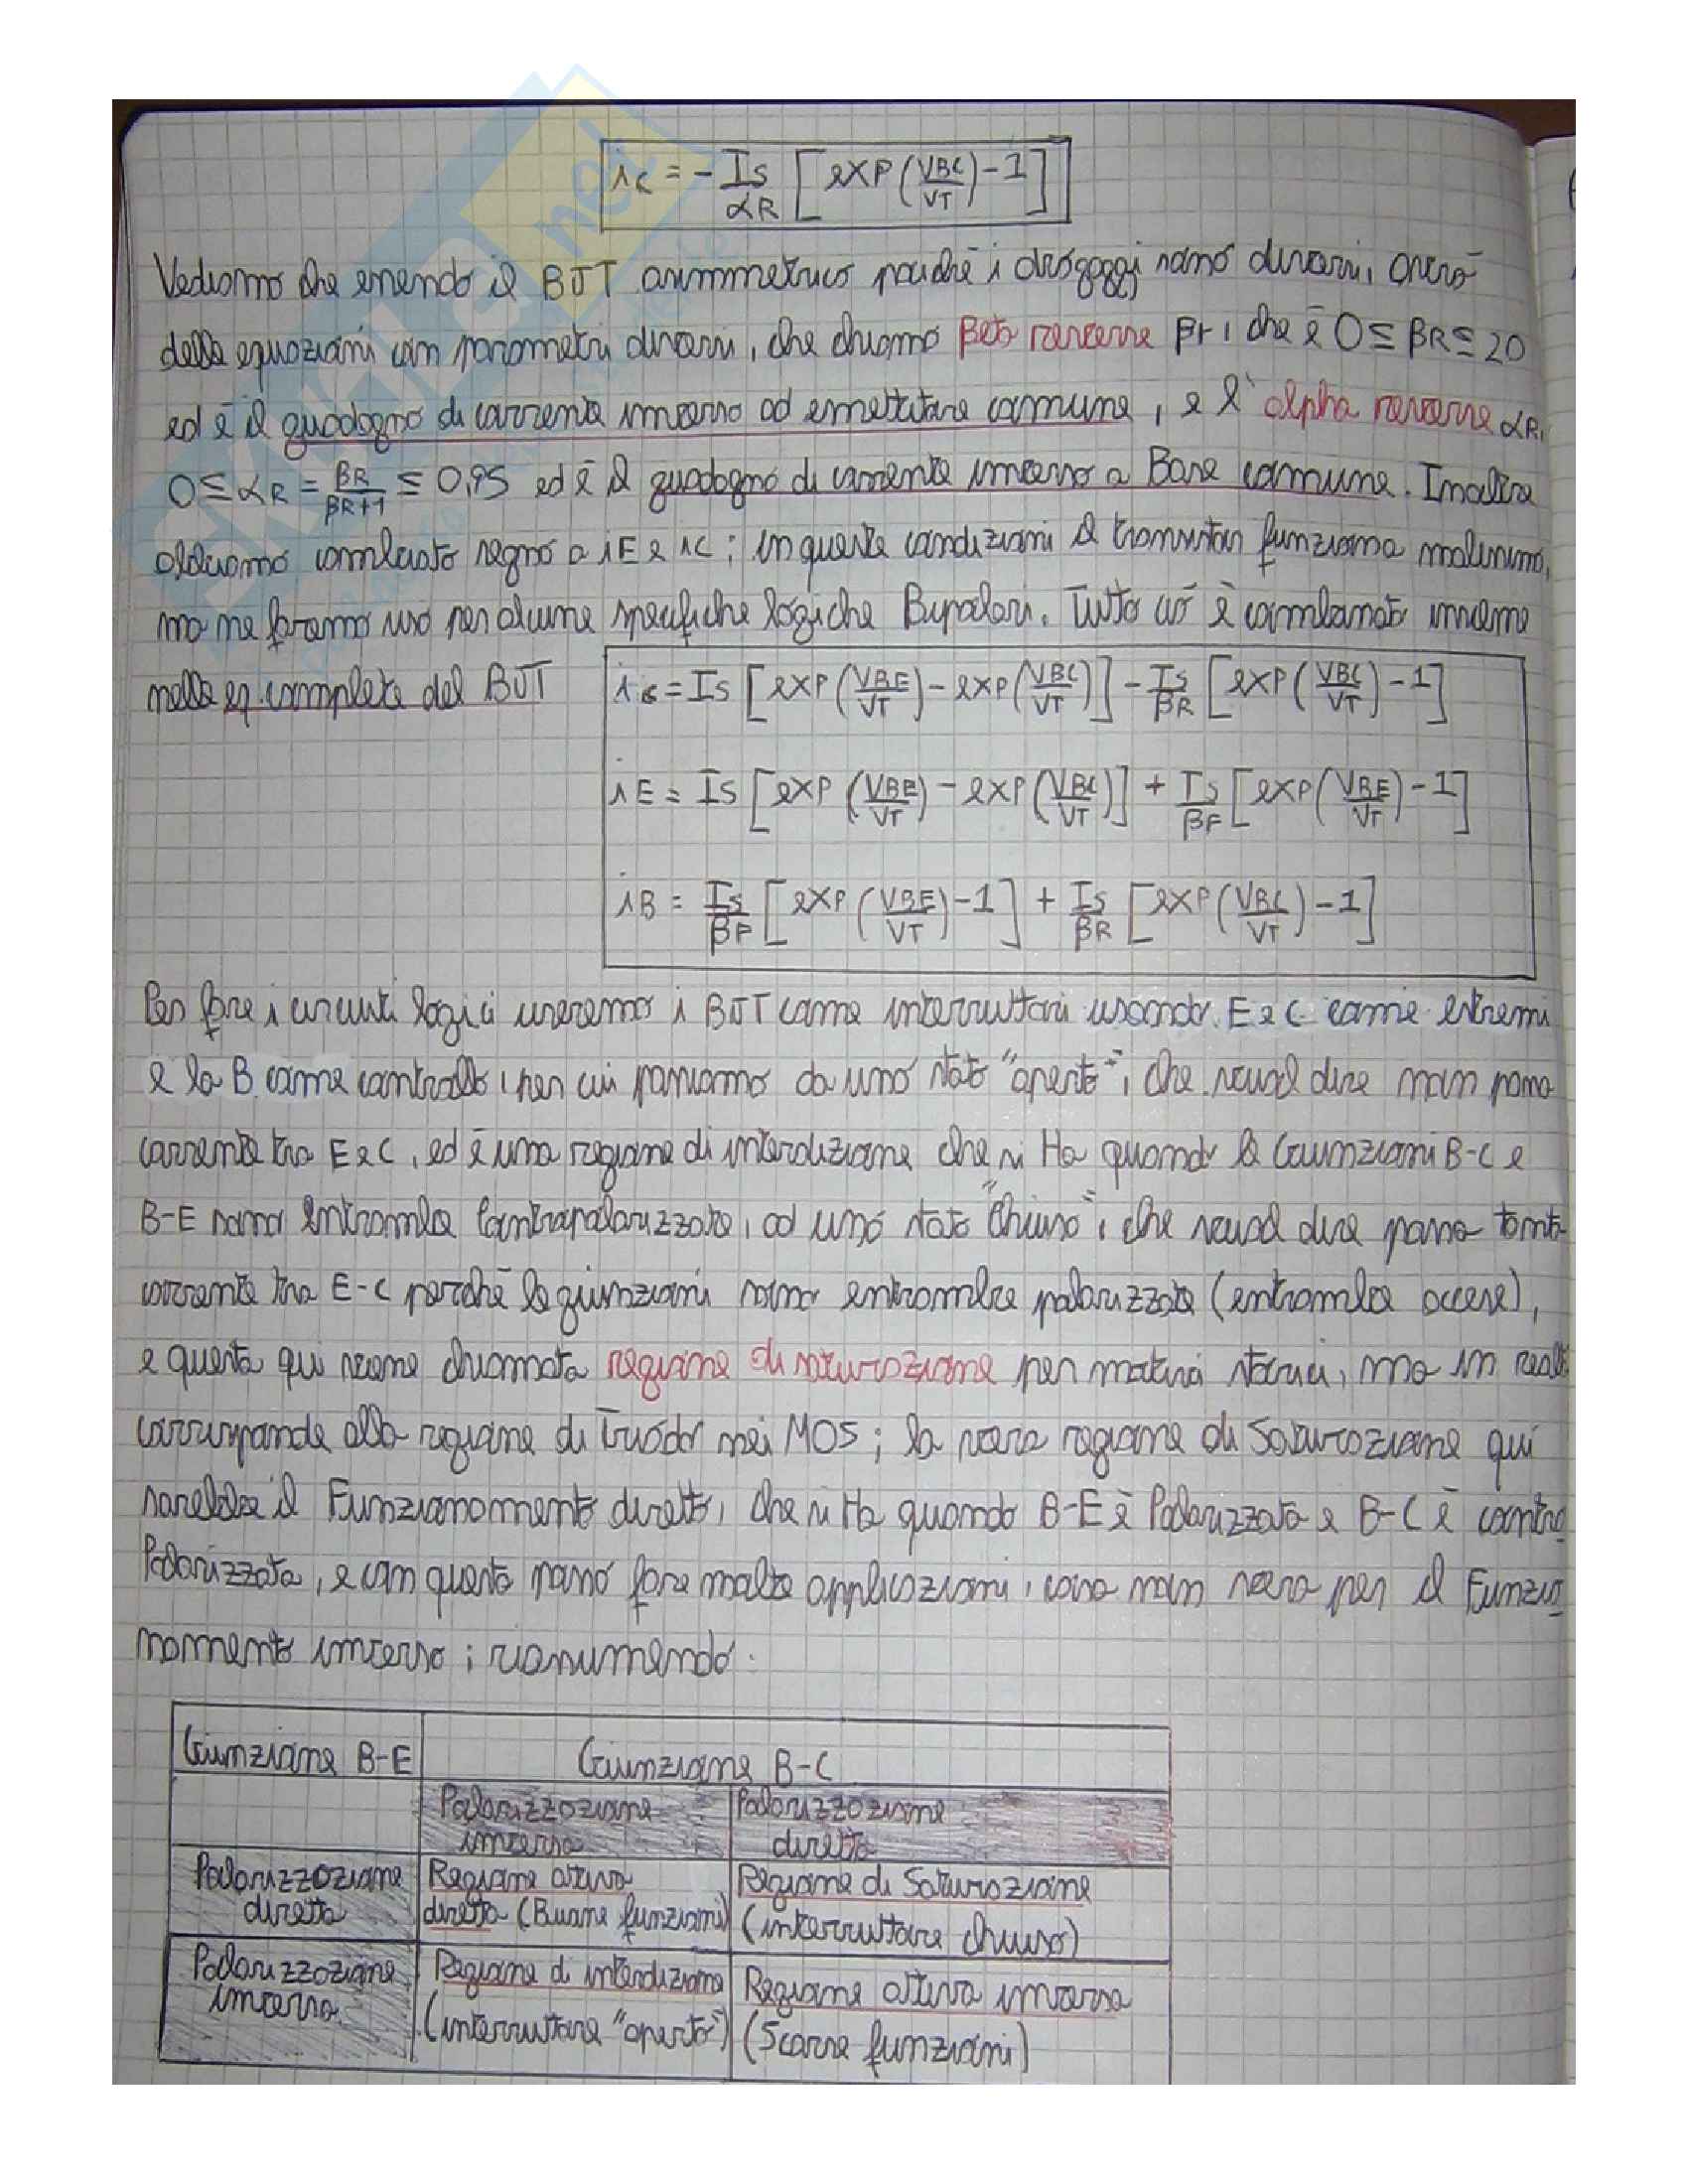 iC = - IS/αR [exp(VBC/VT) - 1]
Vediamo che essendo il BJT asimmetrico poiché i drogaggi sono diversi, avrò
delle equazioni con parametri diversi, che chiamo Beta reverse βr, che è 0 ≤ βR ≤ 20
ed è il guadagno di corrente inverso ad emettitore comune, e l' alpha reverse αR,
0 ≤ αR = βR/βR+1 ≤ 0,95 ed è il guadagno di corrente inverso a Base comune. Inoltre
abbiamo cambiato segno a iE e iC; in queste condizioni il transistor funziona malissimo,
ma ne faremo uso per alcune specifiche logiche Bipolari. Tutto ciò è combinato insieme
nelle eq. complete del BJT
iC = IS [exp(VBE/VT) - exp(VBC/VT)] - IS/βR [exp(VBC/VT) - 1]
iE = IS [exp(VBE/VT) - exp(VBC/VT)] + IS/βF [exp(VBE/VT) - 1]
iB = IS/βF [exp(VBE/VT) - 1] + IS/βR [exp(VBC/VT) - 1]
Per fare i circuiti logici useremo i BJT come interruttori usando E e C come estremi
e la B come controllo, per cui passiamo da uno stato "aperto", che vuol dire non passa
corrente tra E e C, ed è una regione di interdizione che si Ha quando le Giunzioni B-C e
B-E sono entrambe Contropolarizzate, ad uno stato "Chiuso", che vuol dire passa tanta
corrente tra E-C perché le giunzioni sono entrambe polarizzate (entrambe accese),
e questa qui viene chiamata regione di saturazione per motivi storici, ma in realtà
corrisponde alla regione di Triodo nei MOS; la vera regione di Saturazione qui
sarebbe il Funzionamento diretto, che si Ha quando B-E è Polarizzata e B-C è contro
Polarizzata, e con questo posso fare molte applicazioni, cosa non vera per il Funzio-
namento inverso; riassumendo:
Giunzione B-E Giunzione B-C
Polarizzazione inversa Polarizzazione diretta
Polarizzazione diretta Regione attiva diretta (Buone funzioni) Regione di Saturazione (interruttore chiuso)
Polarizzazione inversa Regione di interdizione (interruttore "aperto") Regione attiva inversa (Scarse funzioni)